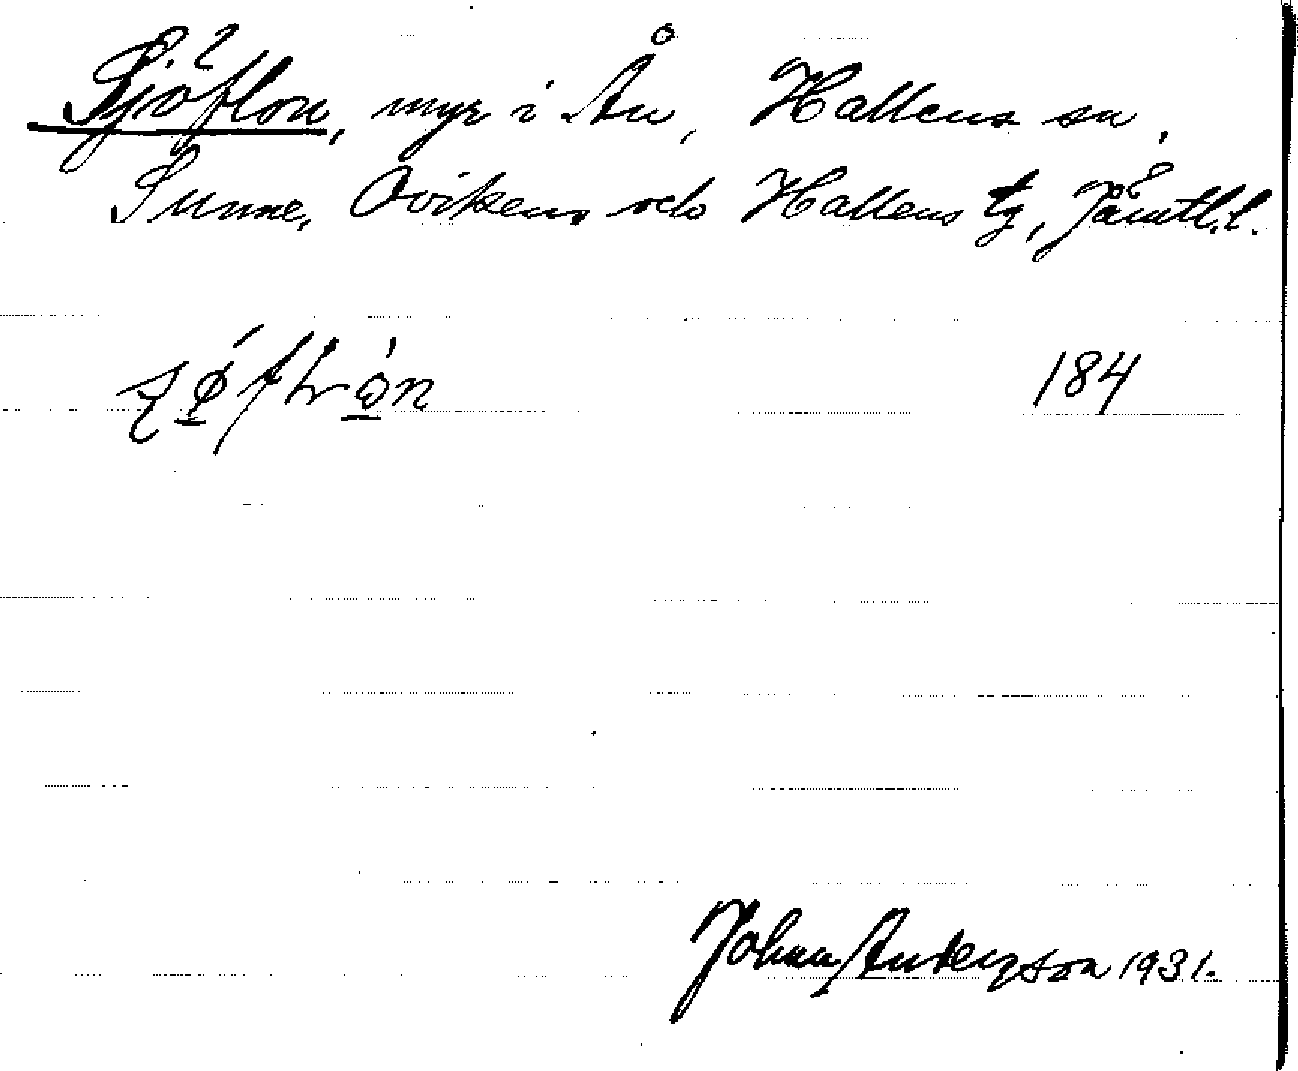 Sjöflon, myr i Ån, Hallens sn,
Sunne, Ovikens och Hallens tg, Jämtl. l.
184
Johan Anderzson 1931.